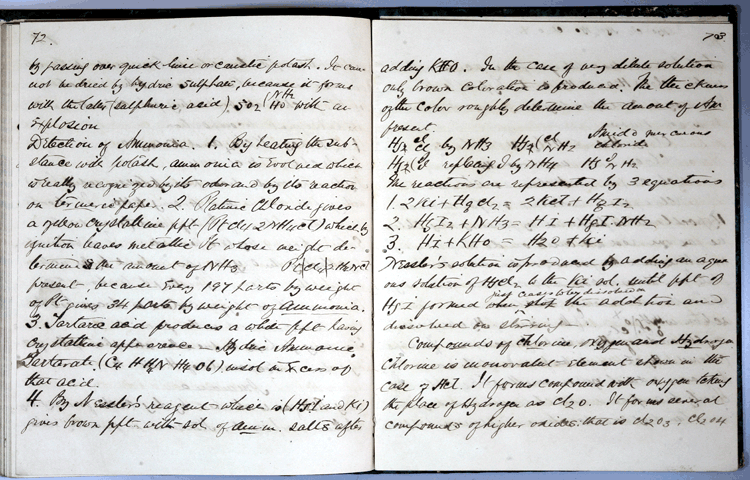 72.
by passing over quick-lime or caustic potash. It can
not be dried by hydric sulphate, because it forms
with the latter (sulphuric acid), SO2 (NH2 HO with an
explosion
Detection of Ammonia. 1. By heating the sub-
stance with potash, ammonia is evolved which
is really recognized by its odor and by its reaction
on turmeric paper. 2. Platinic chloride gives
a yellow crystalline ppt (PtCl4 2NH4Cl) which by
ignition leaves metallic Pt whose weight de-
termines the amount of NH3 Pt|Cl4|2H4NCl
present, because every 197 parts by weight
of Pt gives 34 parts by weight of ammonia.
3. Tartaric acid produces a white ppt having
crystalline appearance - Hydric Ammonic
Tartrate. (C4 H H4N H4 O6) insol in excess of
that acid.
4. By Nessler's reagent which is (HgI and Ki)
gives brown ppt with sol of amm. salts after
73.
adding KHO. In the case of very dilute solution
only brown coloration is produced. The thickness
of the color roughly determine the amount of Am
present.
Hg2 Cl Cl by NH3 Hg2 (Cl NH2 Amido mercurous chloride
Hg2 Cl replacing by NH4
The reactions are represented by 3 equations
1. 2Ki + HgCl2 = 2KCl + HgI2
2. HgI2 + NH3 = HI + HgI.NH2
3. Hi + KHO = H2O + Ki
Nessler's solution is produced by adding an aque
ous solution of HgCl2 to the Ki sol, until ppt of
just ceases to by dissolved on
HgI formed when stop the addition and
dissolved on stirring
Compounds of Chlorine, oxygen and Hydrogen
Chlorine is monovalent element shown in the
case of HCl. It forms compound with oxygen taking
the place of Hydrogen as Cl2O. It forms several
compounds of higher oxides that is Cl2O3, Cl2O4